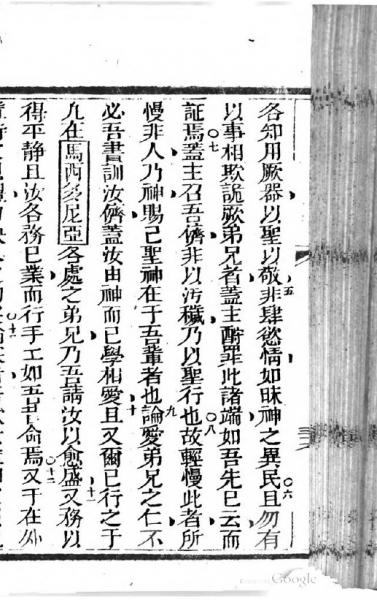 各知用厥器以聖以敬五非肆慾情如昧神之異民六且勿有
以事相欺詭厥弟兄者蓋主酧罪此諸端如吾先已云而
証焉七蓋主召吾儕非以汚穢乃以聖行也八故輕慢此者所
慢非人乃神賜已聖神在于吾輩者也九論愛弟兄之仁不
必吾書訓汝儕蓋汝由神而已學相愛十且又爾已行之于
凡在馬西多尼亞各處之弟兄乃吾請汝以愈盛十一又務以
得平静且汝各務已業而行手工如吾甘命焉十二又于在外
Google